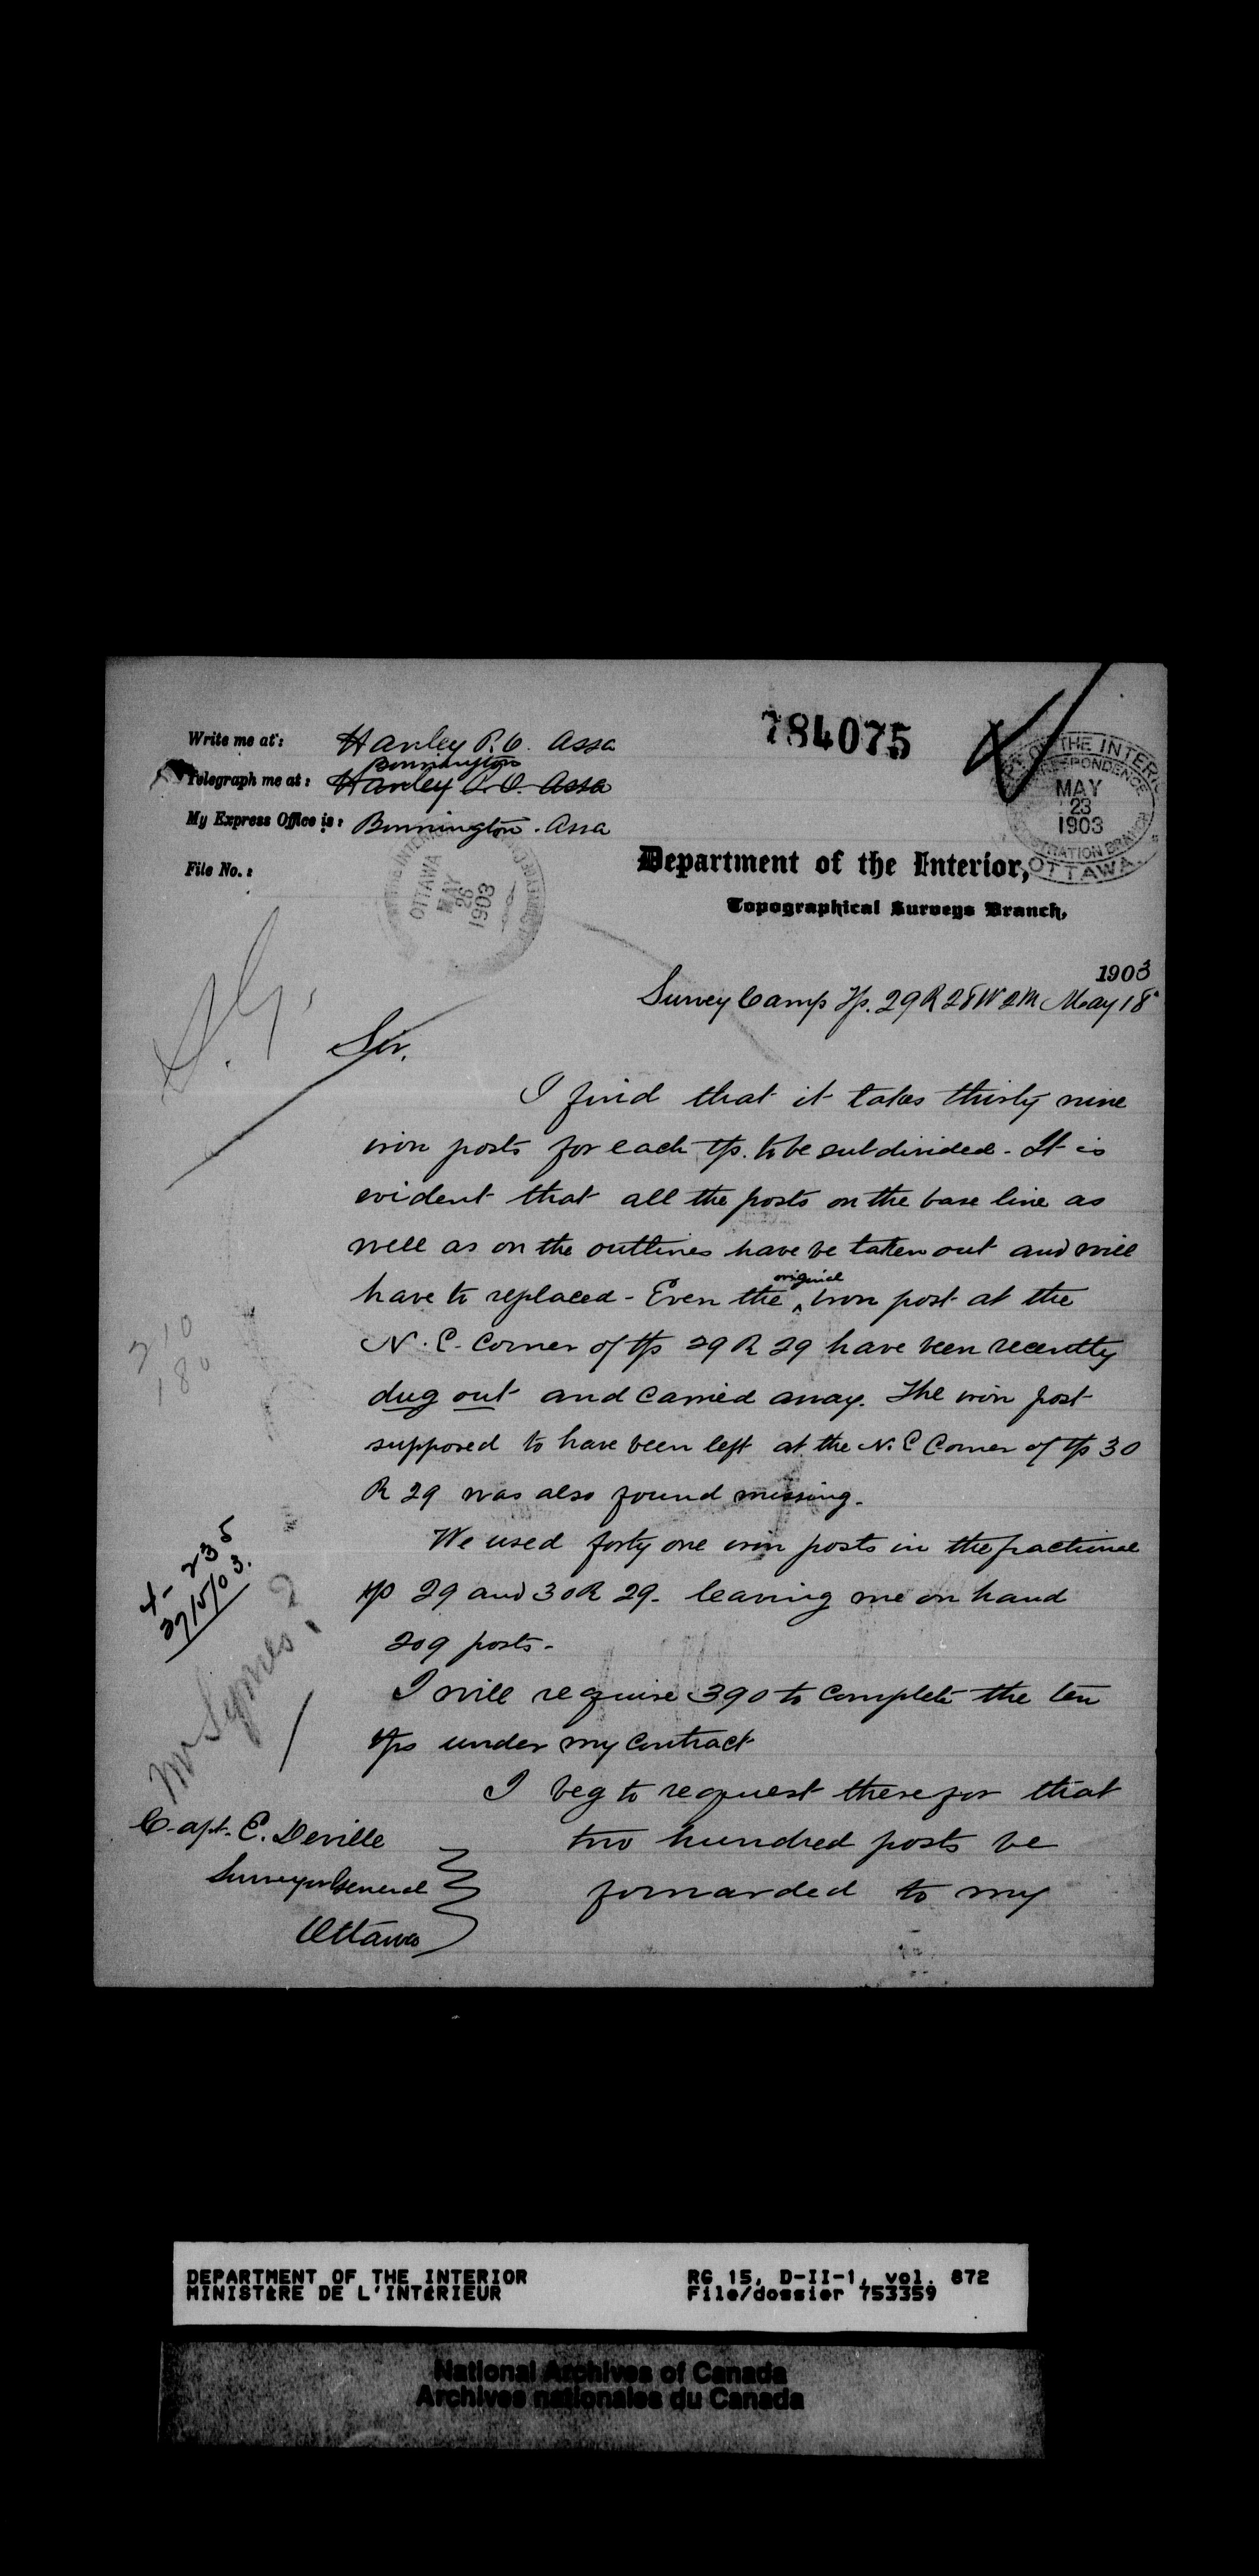 Write me at: Hanley P.O. Assa
Bonnington
Telegraph me at: Hanley P.O. Assa
My Express Office is: Bonnington. Assa
File No.:
784075
MAY
23
1903
OTTAWA.
OTTAWA
MAY
26
1903
Department of the Interior,
Topographical Surveys Branch,
1903
Survey Camp Tp. 29 R 28 W 2M May 18
Sir,
I find that it takes thirty nine
iron posts for each tp. to be subdivided - It is
evident that all the posts on the base line as
well as on the outlines have be taken out and will
have to replaced - Even the original iron post at the
N. E. Corner of tp 29 R 29 have been recently
dug out and carried away. The iron post
supposed to have been left at the N. E Corner of tp 30
R 29 was also found missing.
We used forty one iron posts in the fractional
tp 29 and 30 R 29 - leaving me on hand
209 posts -
I will require 390 to complete the ten
tps under my contract
I beg to request therefor that
two hundred posts be
forwarded to my
Capt. E. Deville
Surveyor General
Ottawa
S.G.
210
180
4-235
27/5/03.
Mr Symes
DEPARTMENT OF THE INTERIOR
MINISTÈRE DE L'INTÉRIEUR
RG 15, D-II-1, vol. 872
File/dossier 753359
National Archives of Canada
Archives nationales du Canada